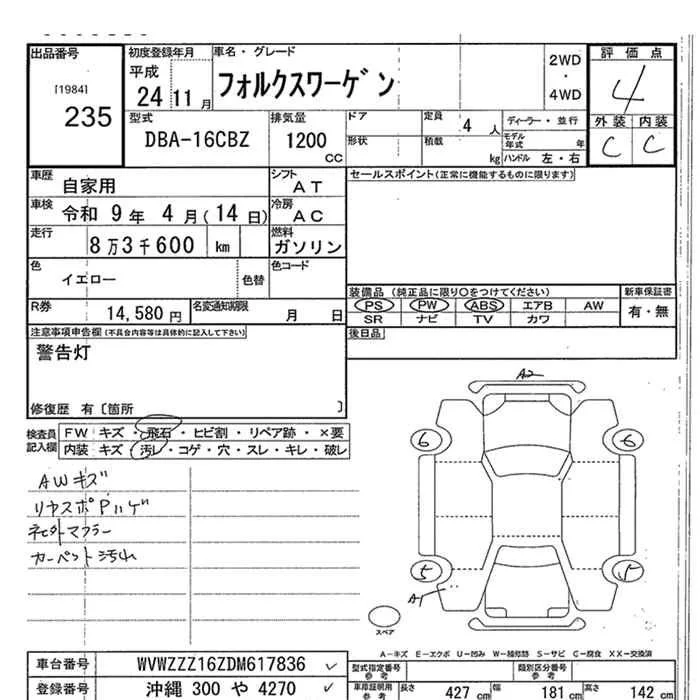 出品番号
[1984]
235
初度登録年月
平成
24 11 月
車名・グレード
フォルクスワーゲン
2WD
・
4WD
評価点
4
外装 内装
C C
型式
DBA-16CBZ
排気量
1200
CC
ドア
定員
4 人
形状
積載
kg
ディーラー・並行
モデル
年式 年
ハンドル 左・右
車歴
自家用
シフト
AT
車検
令和 9 年 4 月(14 日)
冷房
AC
走行
8 万 3 千 600 km
燃料
ガソリン
色
イエロー
色替
色コード
R券
14,580 円
名変通知期限
月 日
セールスポイント(正常に機能するものに限ります)
装備品 (純正品に限り○をつけてください)
PS PW ABS エアB AW
SR ナビ TV カワ
新車保証書
有・無
後日品
注意事項申告欄(不具合内容等は具体的に記入して下さい)
警告灯
修復歴 有〔箇所 〕
検査員
記入欄
FW キズ・飛石・ヒビ割・リペア跡・×要
内装 キズ・汚レ・コゲ・穴・スレ・キレ・破レ
AWキズ
リヤスポPハゲ
社外マフラー
カーペット汚れ
A2
6 6
5 5
A1
スペア
A-キズ E-エクボ U-凹み W-補修跡 S-サビ C-腐食 XX-交換済
車台番号
WVWZZZ16ZDM617836
登録番号
沖縄 300 や 4270
型式指定番号
参考
類別区分番号
参考
車庫証明用
参考
長さ
427 cm
幅
181 cm
高さ
142 cm